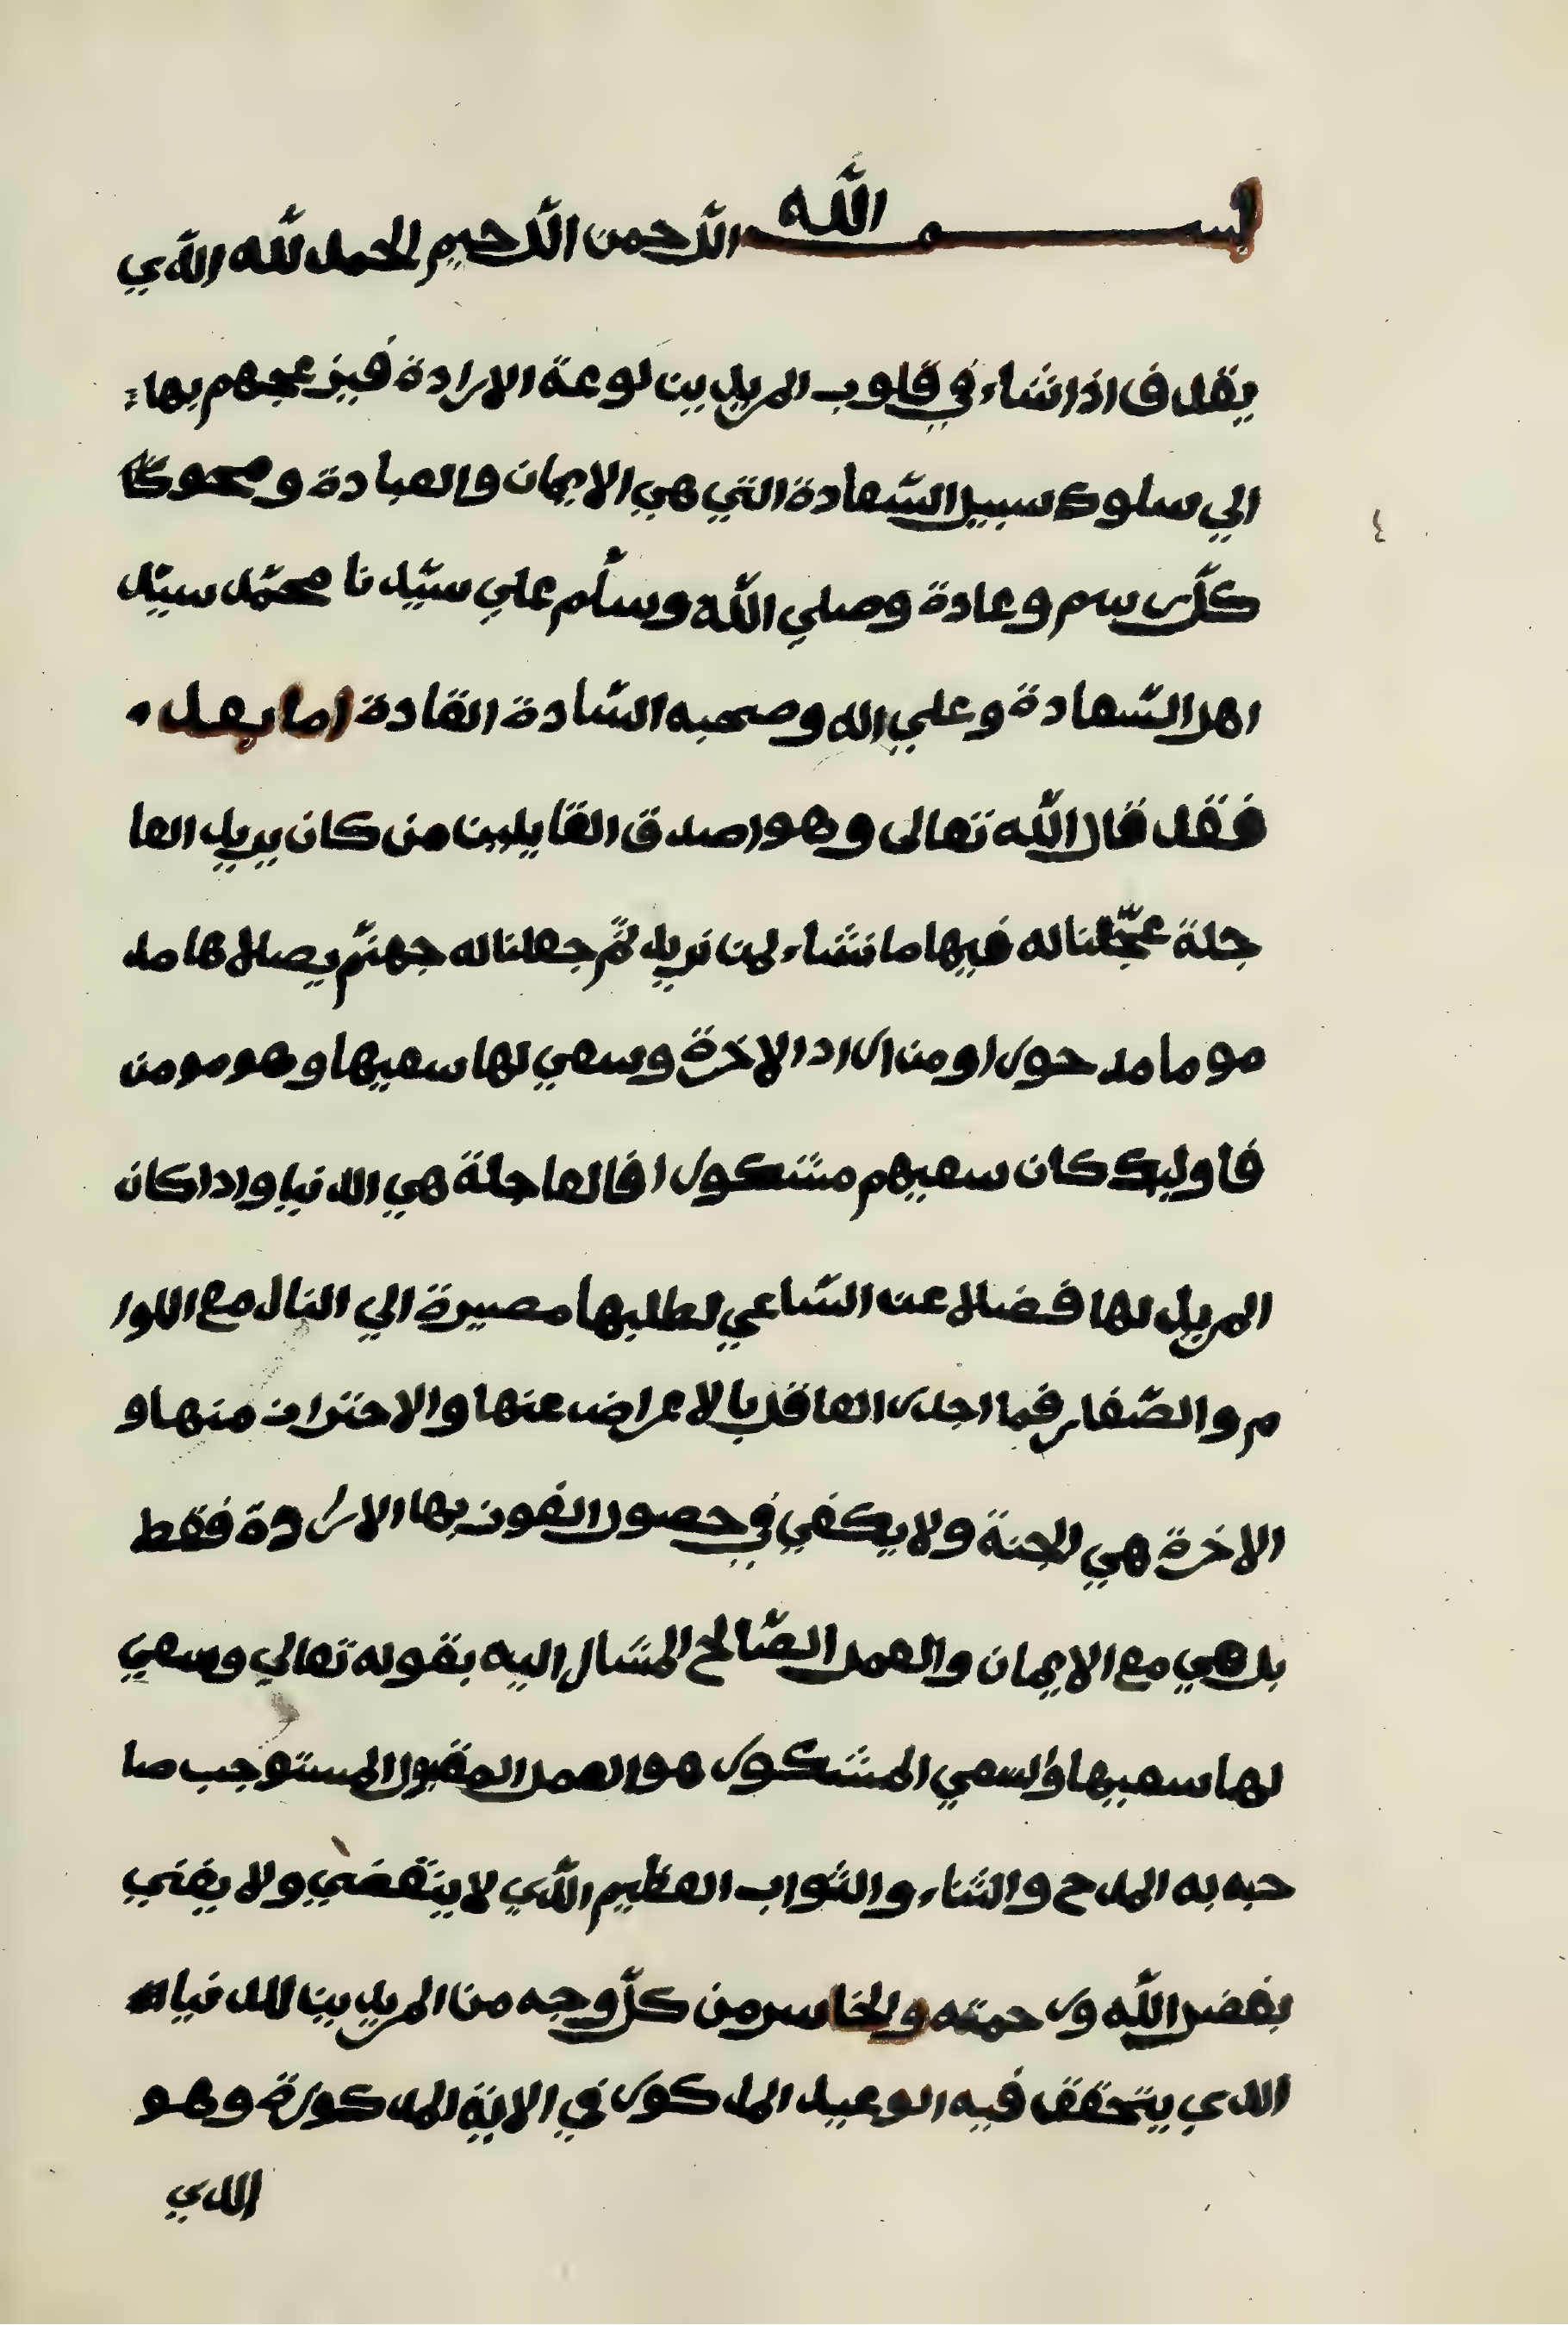 بسم الله الرحمن الرحيم الحمد لله الذي
يقذف اذا شاء في قلوب المريدين لوعة الارادة فيزعجهم بها
الي سلوك سبيل السّعادة التي هي الايمان والعبادة ومحو
كلّ رسم وعادة وصلي الله وسلّم علي سيّدنا محمّد سيّد
اهل السّعادة وعلي اله وصحبه السّادة القادة اما بعد
فقد قال الله تعالى وهو اصدق القايلين من كان يريد العا
جلة عجّلنا له فيها ما نشاء لمن نريد ثمّ جعلنا له جهنّم يصلاها مذ
موما مدحورا ومن اراد الاخرة وسعي لها سعيها وهو مومن
فاوليك كان سعيهم مشكورا فالعاجلة هي الدنيا واذا كان
المريد لها فضلا عن السّاعي لطلبها مصيرة الي النار مع اللو
م والصّغار فما اجدر العاقل بالاعراض عنها والاحتراز منها و
الاخرة هي الجنة ولا يكفي في حصول الفوز بها الارادة فقط
بل هي مع الايمان والعمل الصّالح المشار اليه بقوله تعالي وسعي
لها سعيها والسعي المشكور هو العمل المقبول المستوجب صا
حبه به المدح والثناء والثواب العظيم الّذي لا ينقضي ولا يفني
بفضل الله ورحمته والخاسر من كلّ وجه من المريدين للدنيا
الذي يتحقق فيه الوعيد المذكور في الاية المذكورة وهو
الذي
٤